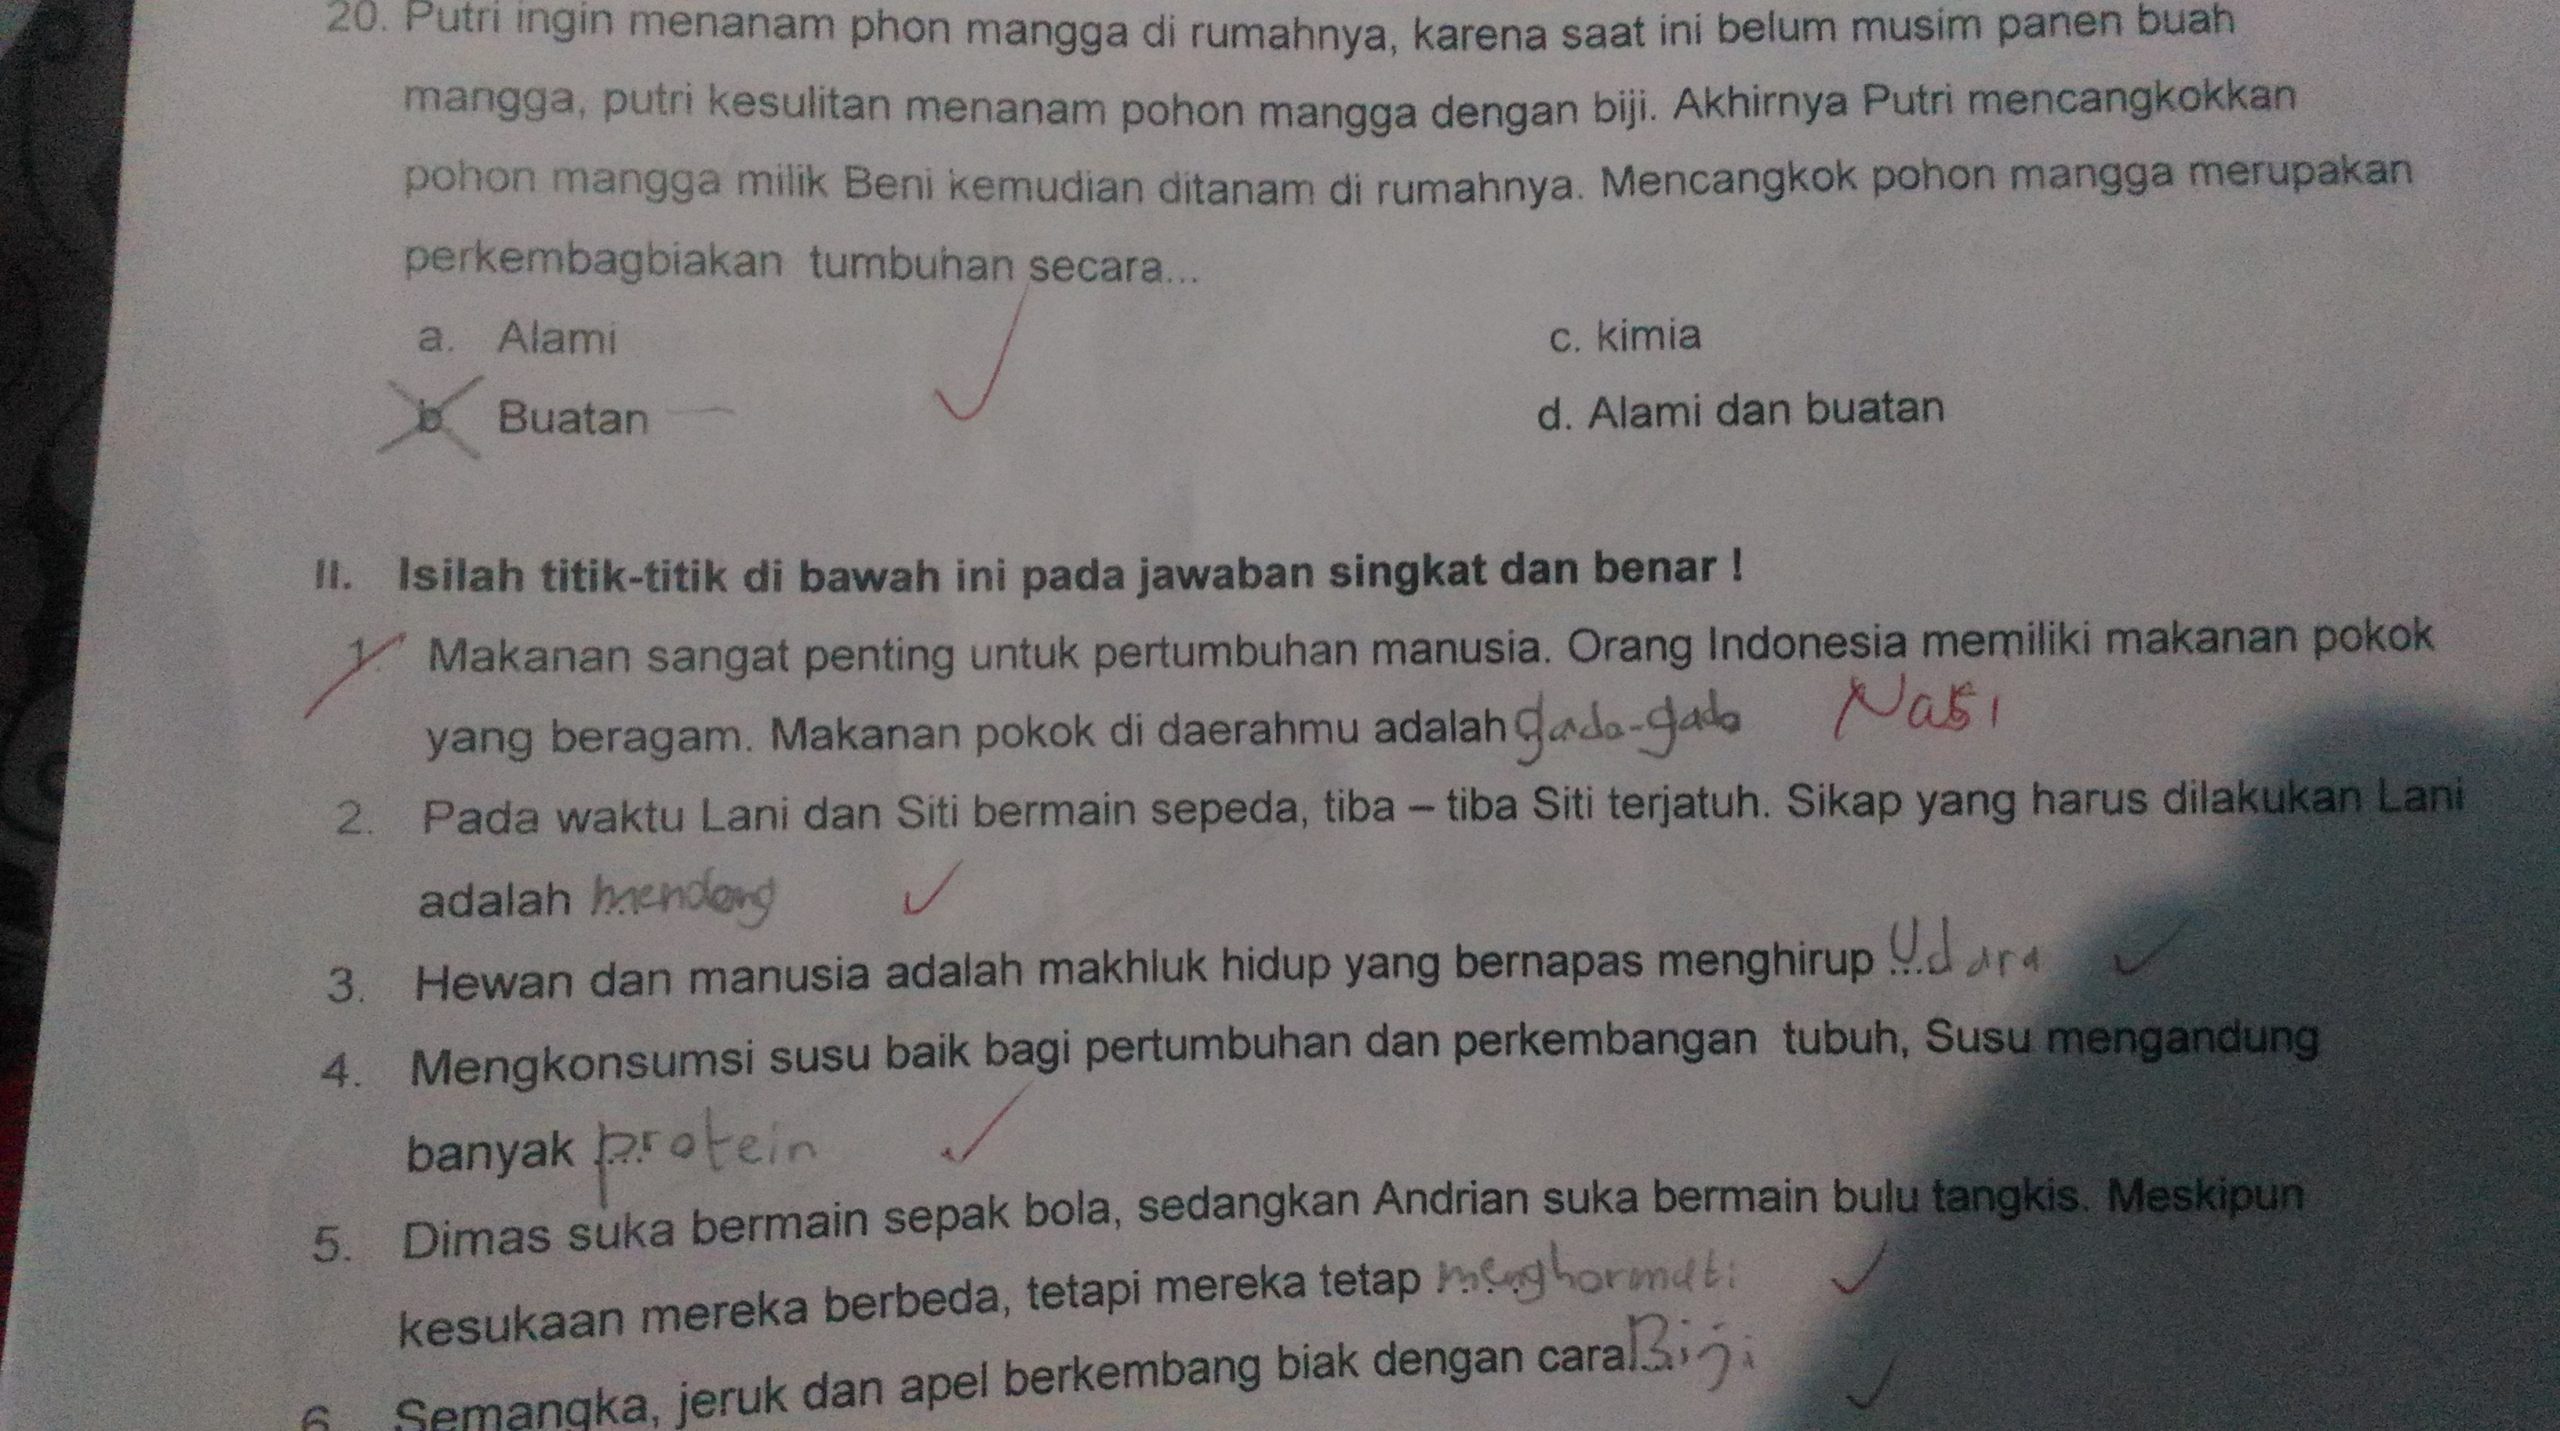 20. Putri ingin menanam phon mangga di rumahnya, karena saat ini belum musim panen buah
mangga, putri kesulitan menanam pohon mangga dengan biji. Akhirnya Putri mencangkokkan
pohon mangga milik Beni kemudian ditanam di rumahnya. Mencangkok pohon mangga merupakan
perkembagbiakan tumbuhan secara...
a. Alami c. kimia
b. Buatan d. Alami dan buatan
II. Isilah titik-titik di bawah ini pada jawaban singkat dan benar !
1. Makanan sangat penting untuk pertumbuhan manusia. Orang Indonesia memiliki makanan pokok
yang beragam. Makanan pokok di daerahmu adalah gado-gado Nasi
2. Pada waktu Lani dan Siti bermain sepeda, tiba – tiba Siti terjatuh. Sikap yang harus dilakukan Lani
adalah mendong
3. Hewan dan manusia adalah makhluk hidup yang bernapas menghirup ...Udara
4. Mengkonsumsi susu baik bagi pertumbuhan dan perkembangan tubuh, Susu mengandung
banyak ...protein
5. Dimas suka bermain sepak bola, sedangkan Andrian suka bermain bulu tangkis. Meskipun
kesukaan mereka berbeda, tetapi mereka tetap ....menghormati
6. Semangka, jeruk dan apel berkembang biak dengan cara....Biji